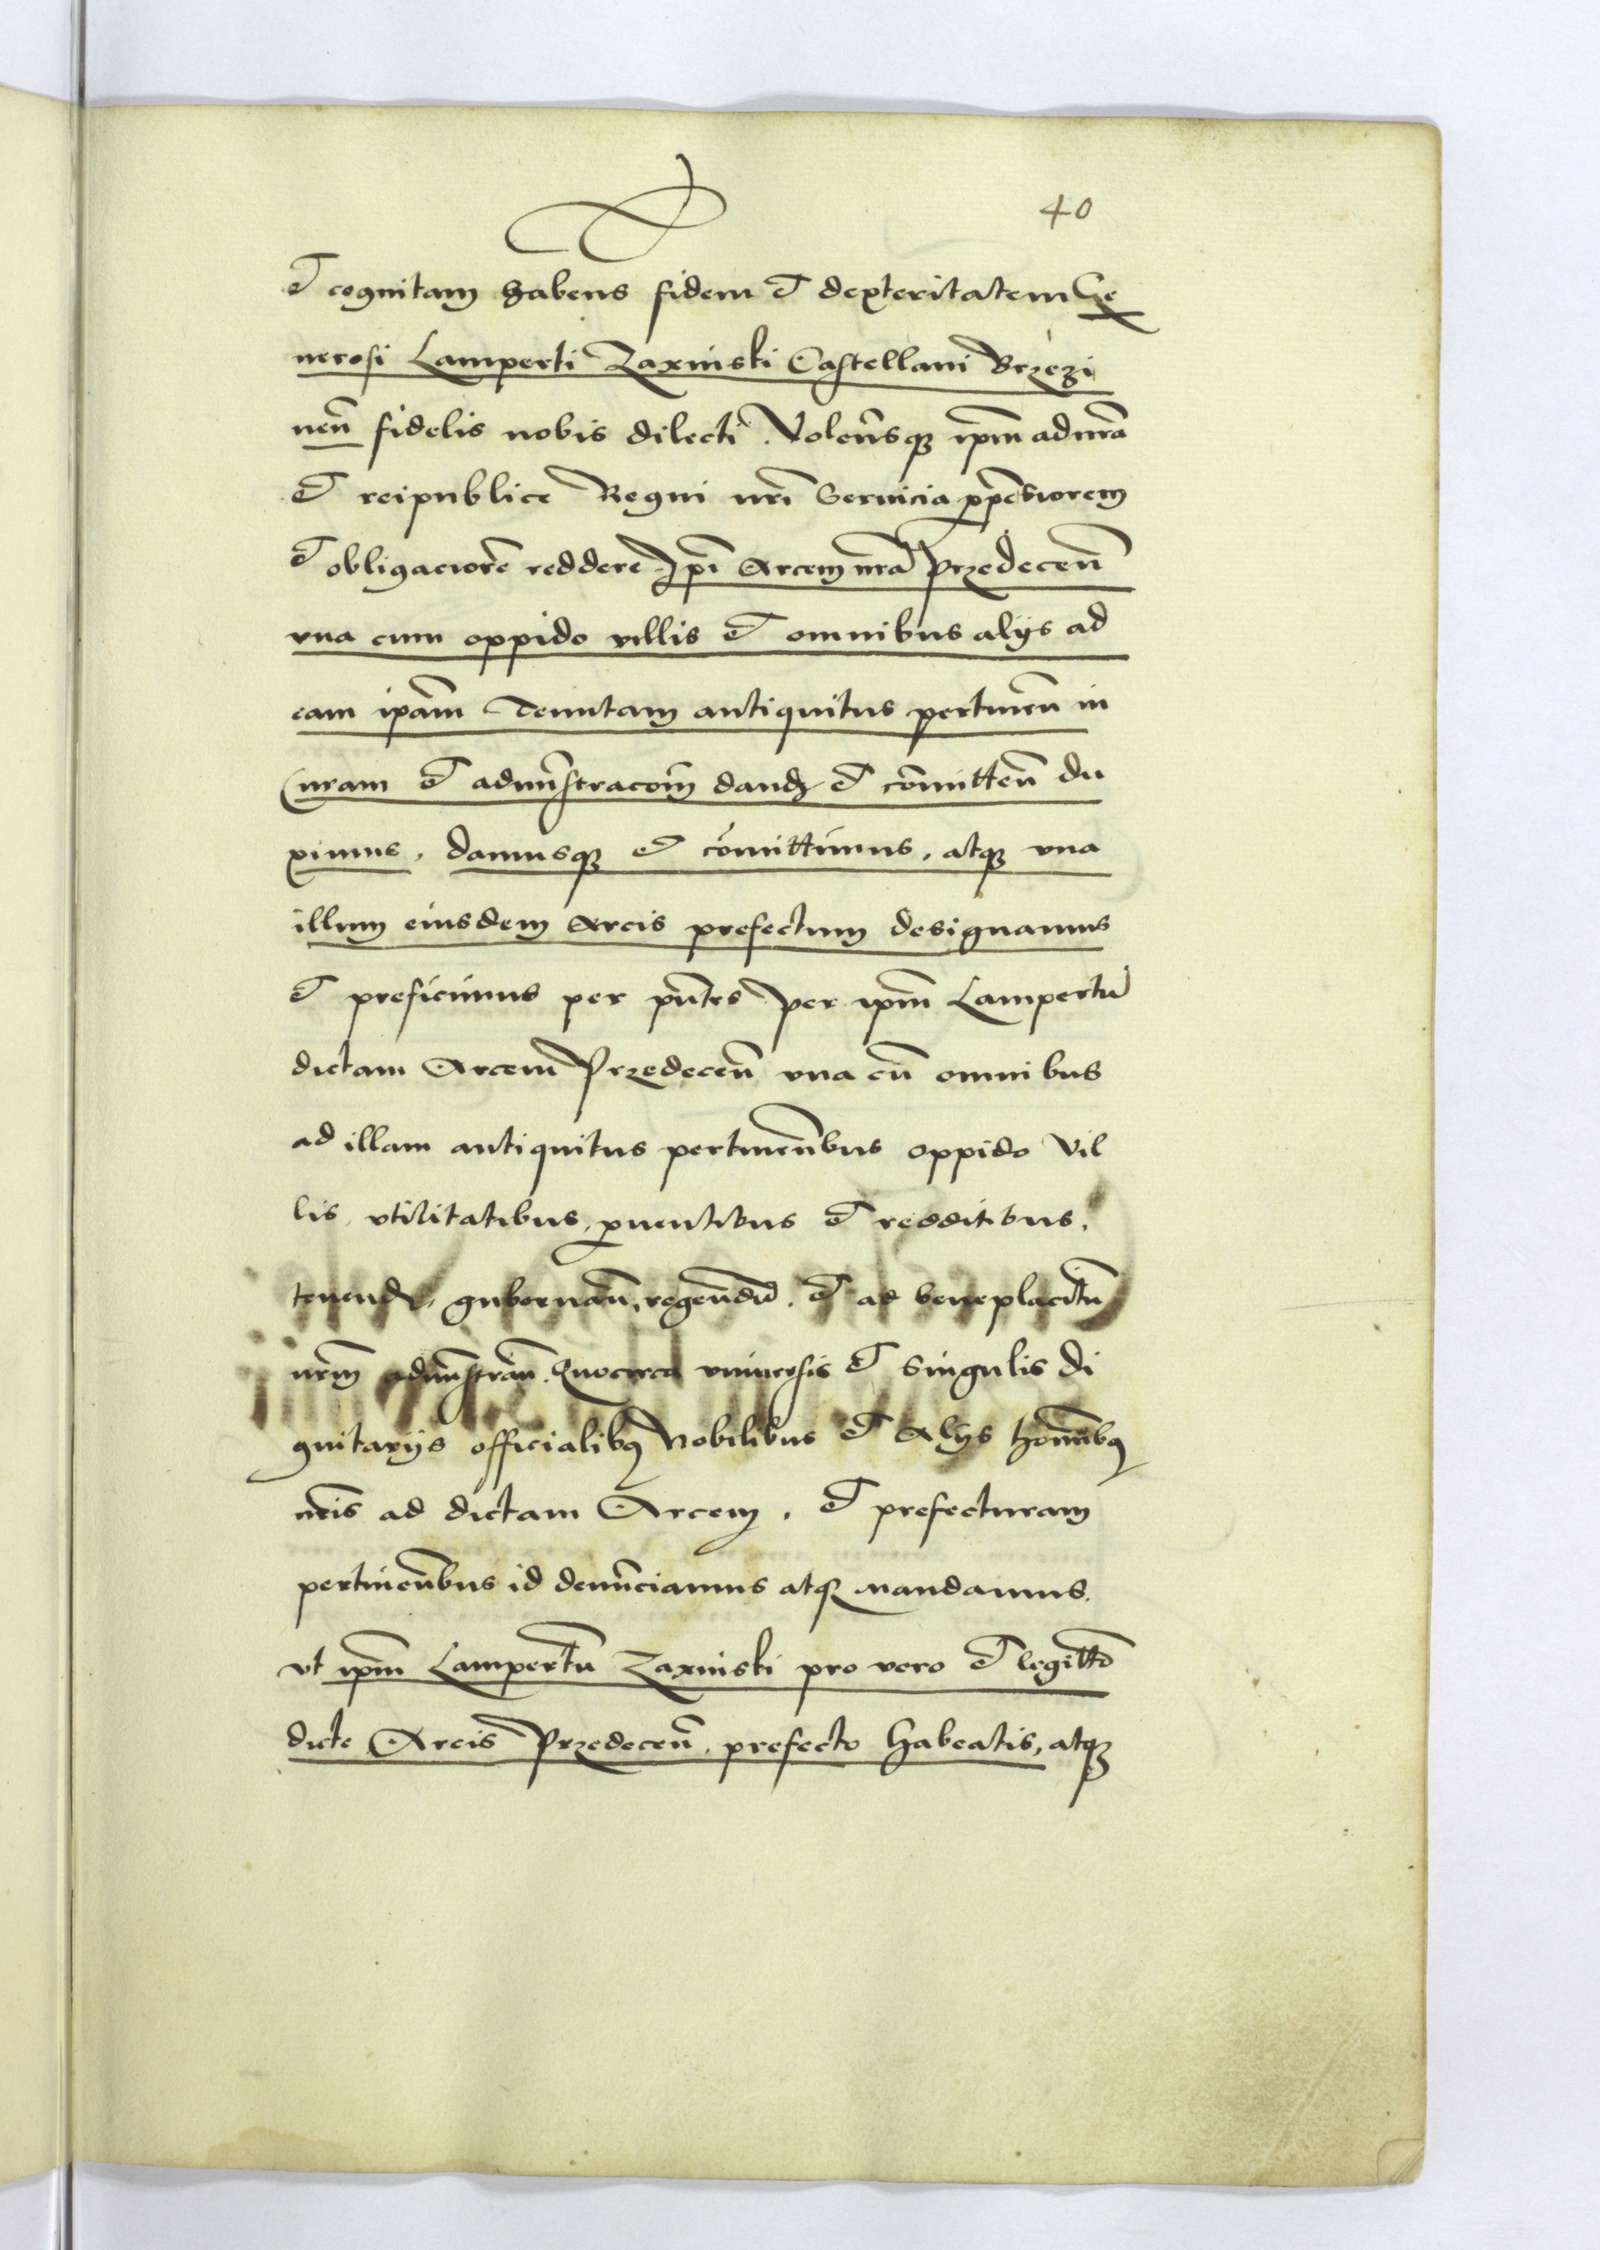 40
et cognitam habens fidem et dexteritatem Ge
nerosi Lamperti Zaxinski Castellani Brzezi
neñ fidelis nobis dilecti. Volensq ip̃m ad nr̃a
et reipublice Regni nr̃i Seruicia
et obligaciorẽ reddere Ip̃i Arcem nr̃ã Przedeceñ
vna cum oppido villis et omnibus alijs ad
eam ip̃am Tenutam antiquitus pertineñ in
Curam et admĩstracoẽm dandq et cõmitteñ du
ximus, damusq et cõmittimus, atq vna
illum eiusdem Arcis prefectum designamus
et preficimus per pñtes per ip̃m Lampertũ
dictam Arcem Przedeceñ vna cũ omnibus
ad illam antiquitus pertineñbus oppido Vil
lis, vtilitatibus, puentibus et redditibus,
tenend, gubernañ, regendũ, et ad beneplacitũ
nr̃m admĩstrañ. Quocirca vniuersis et Singulis di
gnitarijs officialibq Nobilibus et Alijs hoĩnibq
nr̃is ad dictam Arcem, et prefecturam
pertineñbus id denũciamus atq mandamus.
vt ip̃m Lampertũ Zaxinski pro vero et legitto
dicte Arcis Przedeceñ, prefecto habeatis, atq